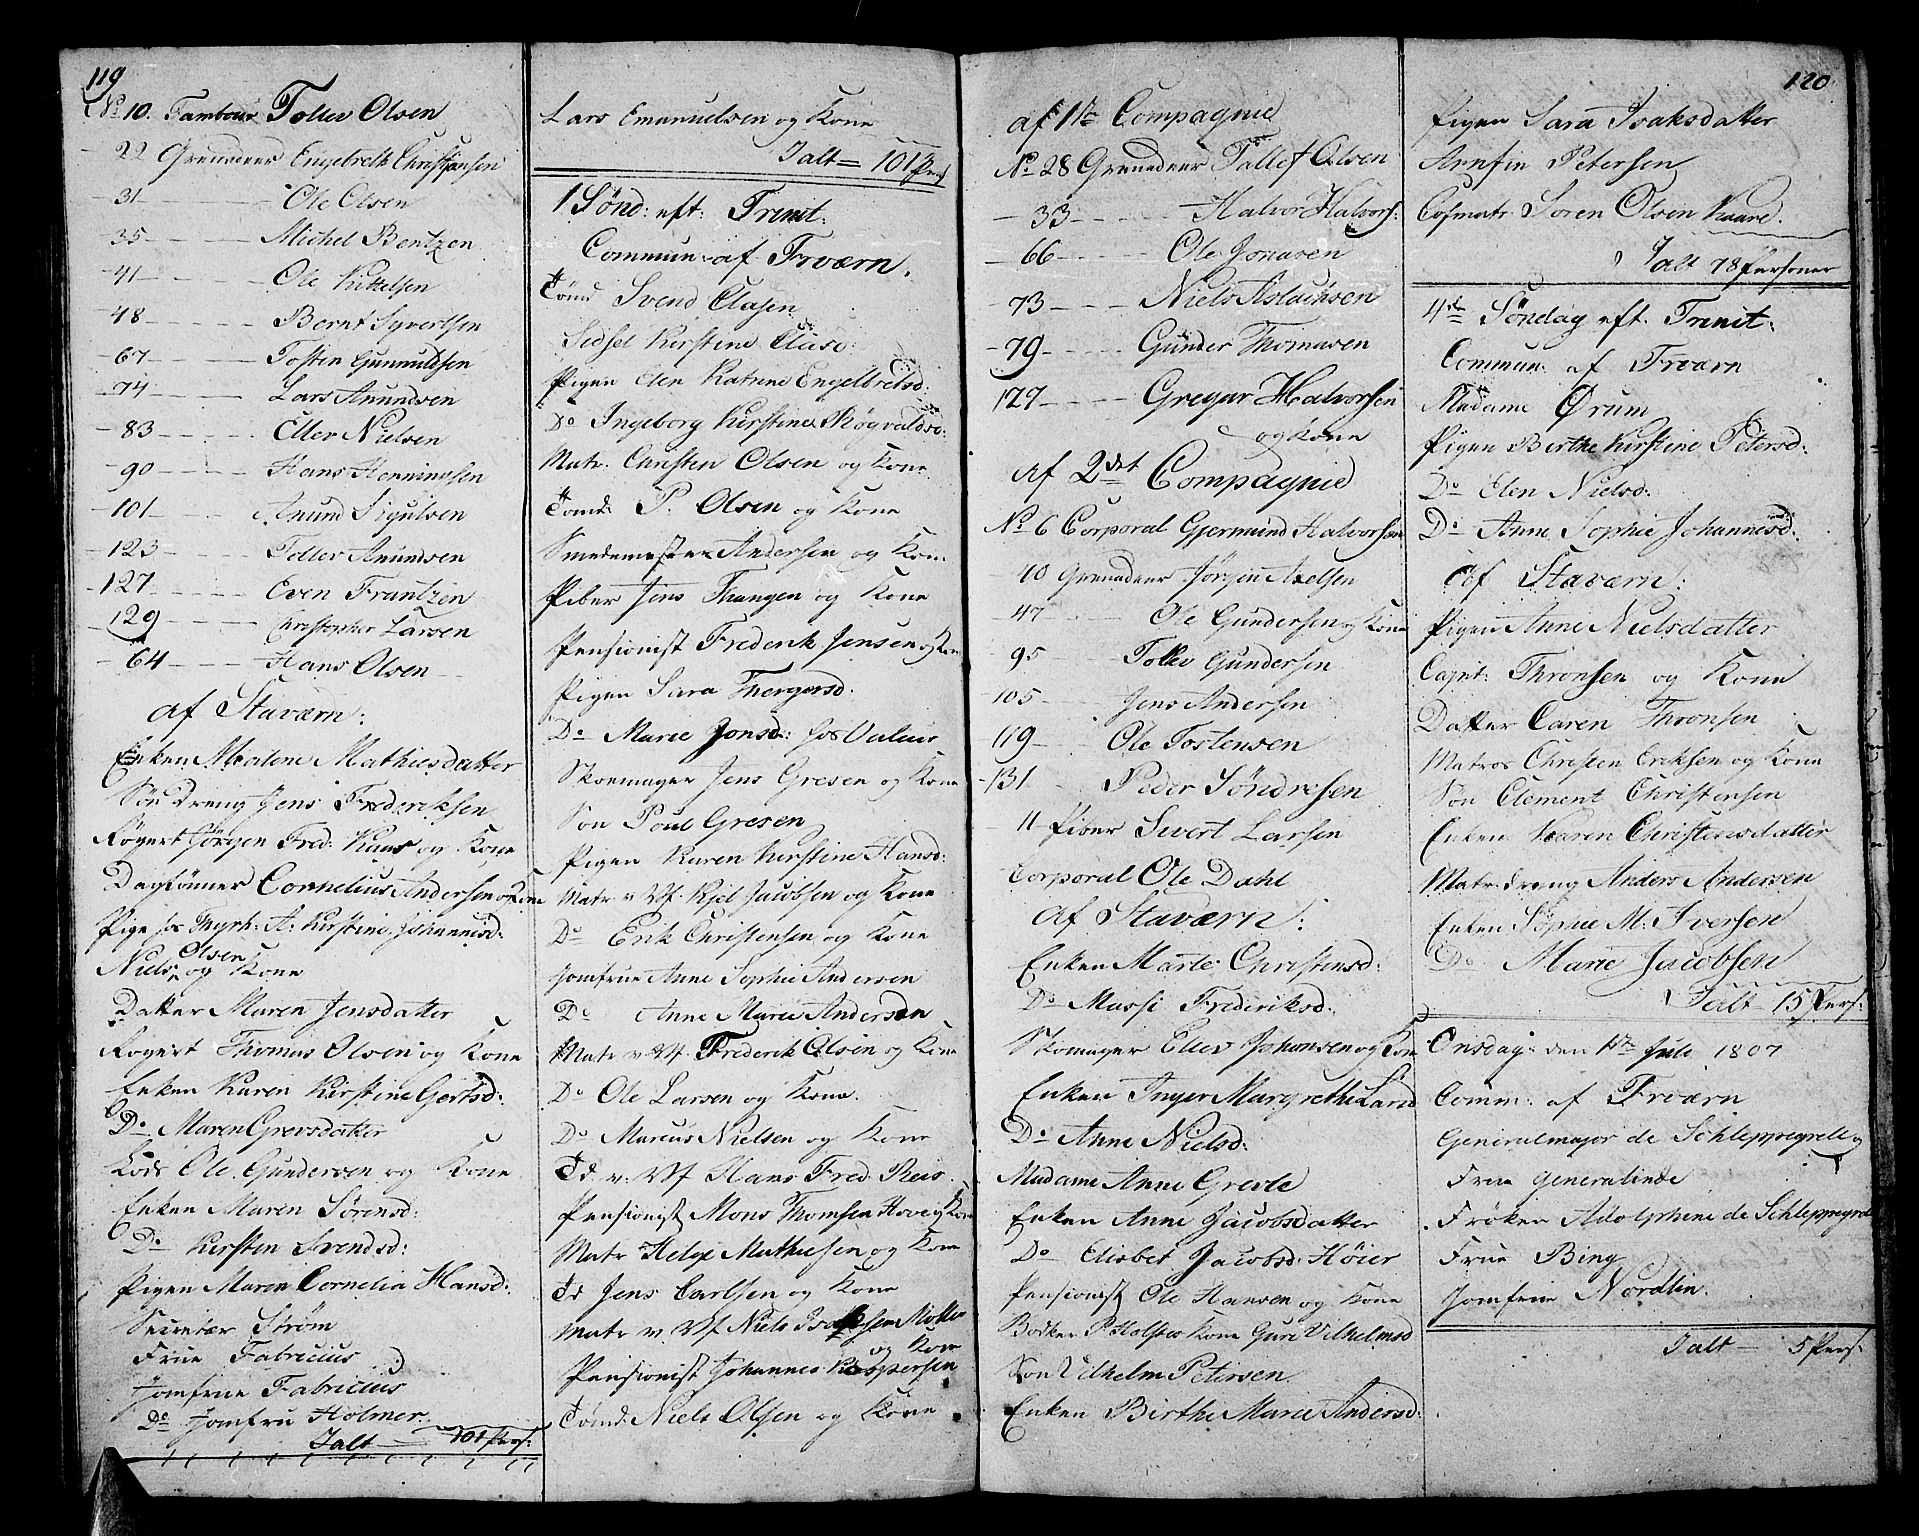 119
No 10. Tambour Tollev Olsen
22 Grenadeer Engebreth Christiansen
31 Ole Olsen
35 Michel Bentzen
41 Ole Kittelsen
48 Bernt Syvertsen
67 Tosten Gunnuldsen
74 Lars Anundsen
83 Ellev Nielsen
90 Hans Henningsen
101 Anund Sigulsen
123 Tollev Anundsen
127 Even Frantzen
129 Christopher Larsen
64 Hans Olsen
af Staværn:
Enken Malene Mathiesdatter
Søn Dreng Jens Frederiksen
Røgert Jørgen Fred: Kaas og Kone
Dagtømer Cornelius Andersen og Kone
Pige hos Thyrh: A: Kirstine Johannesd:
Niels Olsen og Kone
Datter Maren Jensdatter
Røgert Thomas Olsen og Kone
Enken Karen Kirstine Gertsd:
Do Maren Grevsdatter
Lods Ole Gundersen og Kone
Enken Maren Sørensd:
Do Kirsten Svendsd:
Pigen Maren Cornelia Hansd:
Secretær Strøm
Frue Fabricius
Jomfrue Fabricius
Do Jomfru Holmer
Ialt — 101 Pers:
Lars Emanuelsen og Kone
Ialt = 101 Pers
1 Sønd: eft: Trinit:
Commun: af Frværn.
Tømd Svend Clasen
Sidsel Kirstine Clasd:
Pigen Elen Katrine Engelbretsd:
Do Ingeborg Kirstine Røgvaldsd:
Matr. Christen Olsen og Kone
Tømd. P. Olsen og Kone
Smedemester Andersen og Kone
Piber Jens Thangen og Kone
Pensionist Frederik Jensen og Kone
Pigen Sara Thergersd:
Do Marie Jonsd: hos Valeur
Skoemager Jens Gresen og Kone
Søn Poul Gresen
Pigen Karen Kirstine Hansd:
Matr v. Vf. Kjel Jacobsen og Kone
Do Erik Christensen og Kone
Jomfrue Anne Sophie Andersen
Do Anne Marie Andersen
Matr v. Vf. Frederik Olsen og Kone
Do Ole Larsen og Kone.
Do Marcus Nielsen og Kone
Td v. Vf Hans Fred. Reis
Pensionist Mons Thomsen Hove og Kone
Matr Helge Mathiesen og Kone
Td Jens Carlsen og Kone
Matr v. Vf Niels Isaksen Møller
og Kone
Pensionist Johannes Kaspersen
Tømd. Niels Olsen og Kone
af 1te Compagnie
No 28 Grenadeer Tallef Olsen
33 Halvor Halvors:
66 Ole Jonasen
73 Niels Aslachsen
79 Gunder Thomasen
127 Gregar Halvorsen
og Kone
af 2det Compagnie
No 6 Corporal Gjermund Halvorsen
40 Grenadeer Jörgen Axelsen
47 Ole Gundersen og Kone
95 Tollev Gundersen
105 Jens Andersen
119 Ole Tostensen
131 Peder Söndresen
11 Piber Sivert Larsen
Corporal Ole Dahl
af Staværn:
Enken Marte Christensd:
Do Massi Frederiksd:
Skomager Ellev Johansen og Kone
Enken Inger Margrethe Larsd
Do Anne Nielsd:
Madame Anne Greve
Enken Anne Jacobsdatter
Do Elisbet Jacobsd: Høier
Pensionist Ole Hansen og Kone
Bødker P. Holstes Kone Guri Vilhelmsd
Søn Vilhelm Petersen
Enken Birthe Marie Andersd:
120
Pigen Sara Isaksdatter
Arnsin Petersen
Cofmatr. Soren Olsen Kaard.
Ialt 78 Personer
4de Søndag eft. Trinit:
Commun: af Frværn
Madame Ørum
Pigen Birthe Kirstine Petersd:
Do Elen Nielsd:
Do Anne Sophie Johannesd:
af Staværn:
Pigen Anne Nielsdatter
Capit: Thronsen og Kone
Datter Caren Thronsen
Matros Christen Eriksen og Kone
Søn Clement Christensen
Enken Karen Christensdatter
Matr: dreng Anders Andersen
Enken Sophie M: Iversen
Do Marie Jacobsen
Ialt — 15 Pers:
Onsdag: den 1te Juli 1807
Comm: af Frværn
Generalmajor de Schleppegrell og
Frue Generalinde
Frøken Adolphine de Schleppegrell
Frue Bing
Jomfrue Nordlin
Ialt — 5 Pers: